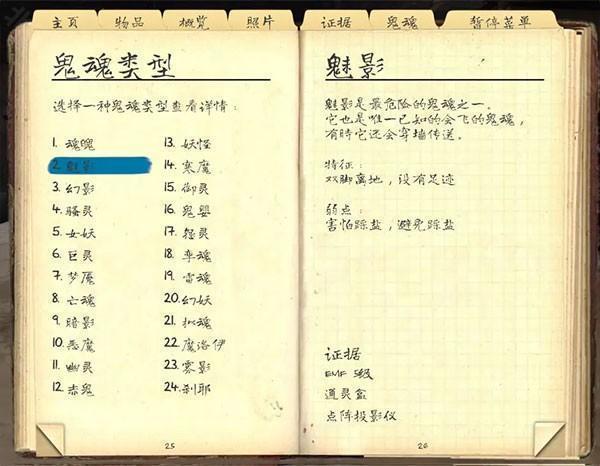 主页 物品 概览 照片 证据 鬼魂 暂停菜单
鬼魂类型
选择一种鬼魂类型查看详情：
1. 魂魄
2. 魅影
3. 幻影
4. 骚灵
5. 女妖
6. 巨灵
7. 梦魇
8. 亡魂
9. 暗影
10. 恶魔
11. 幽灵
12. 赤鬼
13. 妖怪
14. 寒魔
15. 御灵
16. 鬼婴
17. 怨灵
18. 孪魂
19. 雷魂
20. 幻妖
21. 拟魂
22. 魔洛伊
23. 雾影
24. 刹耶
25
魅影
魅影是最危险的鬼魂之一。
它也是唯一已知的会飞的鬼魂，
有时它还会穿墙传送。
特征：
双脚离地，没有足迹
弱点：
害怕踩盐，避免踩盐
证据
EMF 5级
通灵盒
点阵投影仪
26